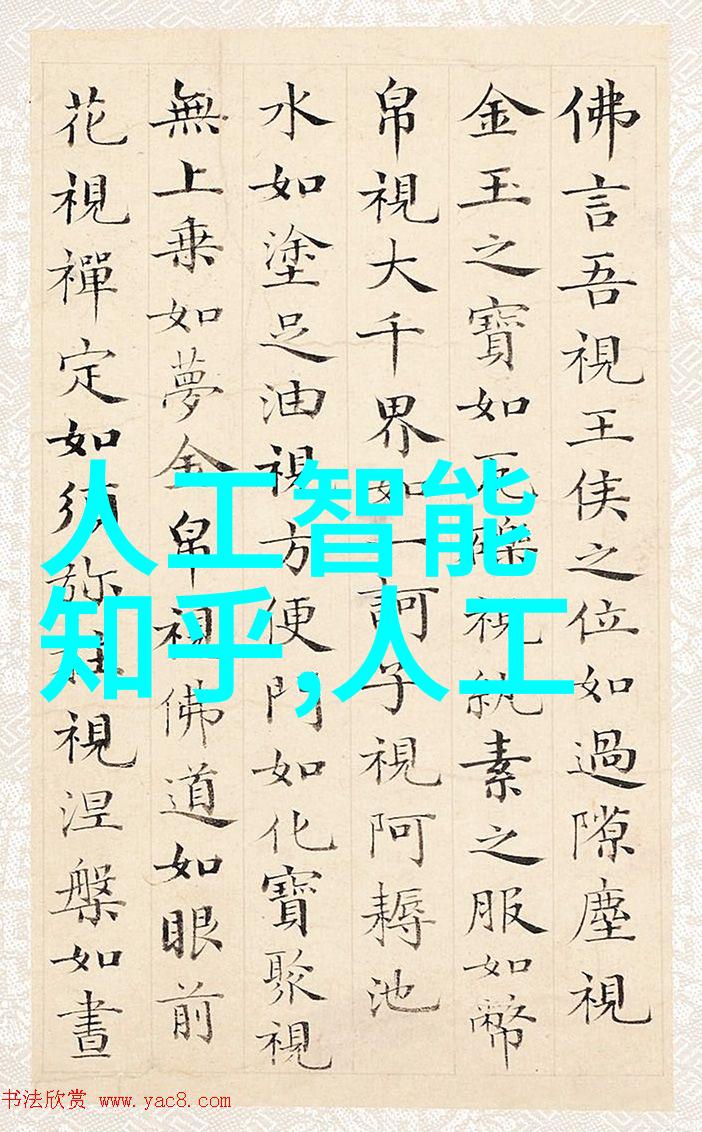 佛言吾視王侯之位如過隙塵視
金玉之寶如瓦礫視紈素之服如幣
帛視大千界如一訶子視阿耨池
水如塗足油視方便門如化寶聚視
無上乗如夢金帛視佛道如眼前
花視禪定如須弥柱視涅槃如晝
人工智能
知乎,人工
书法欣赏 www.yac8.com